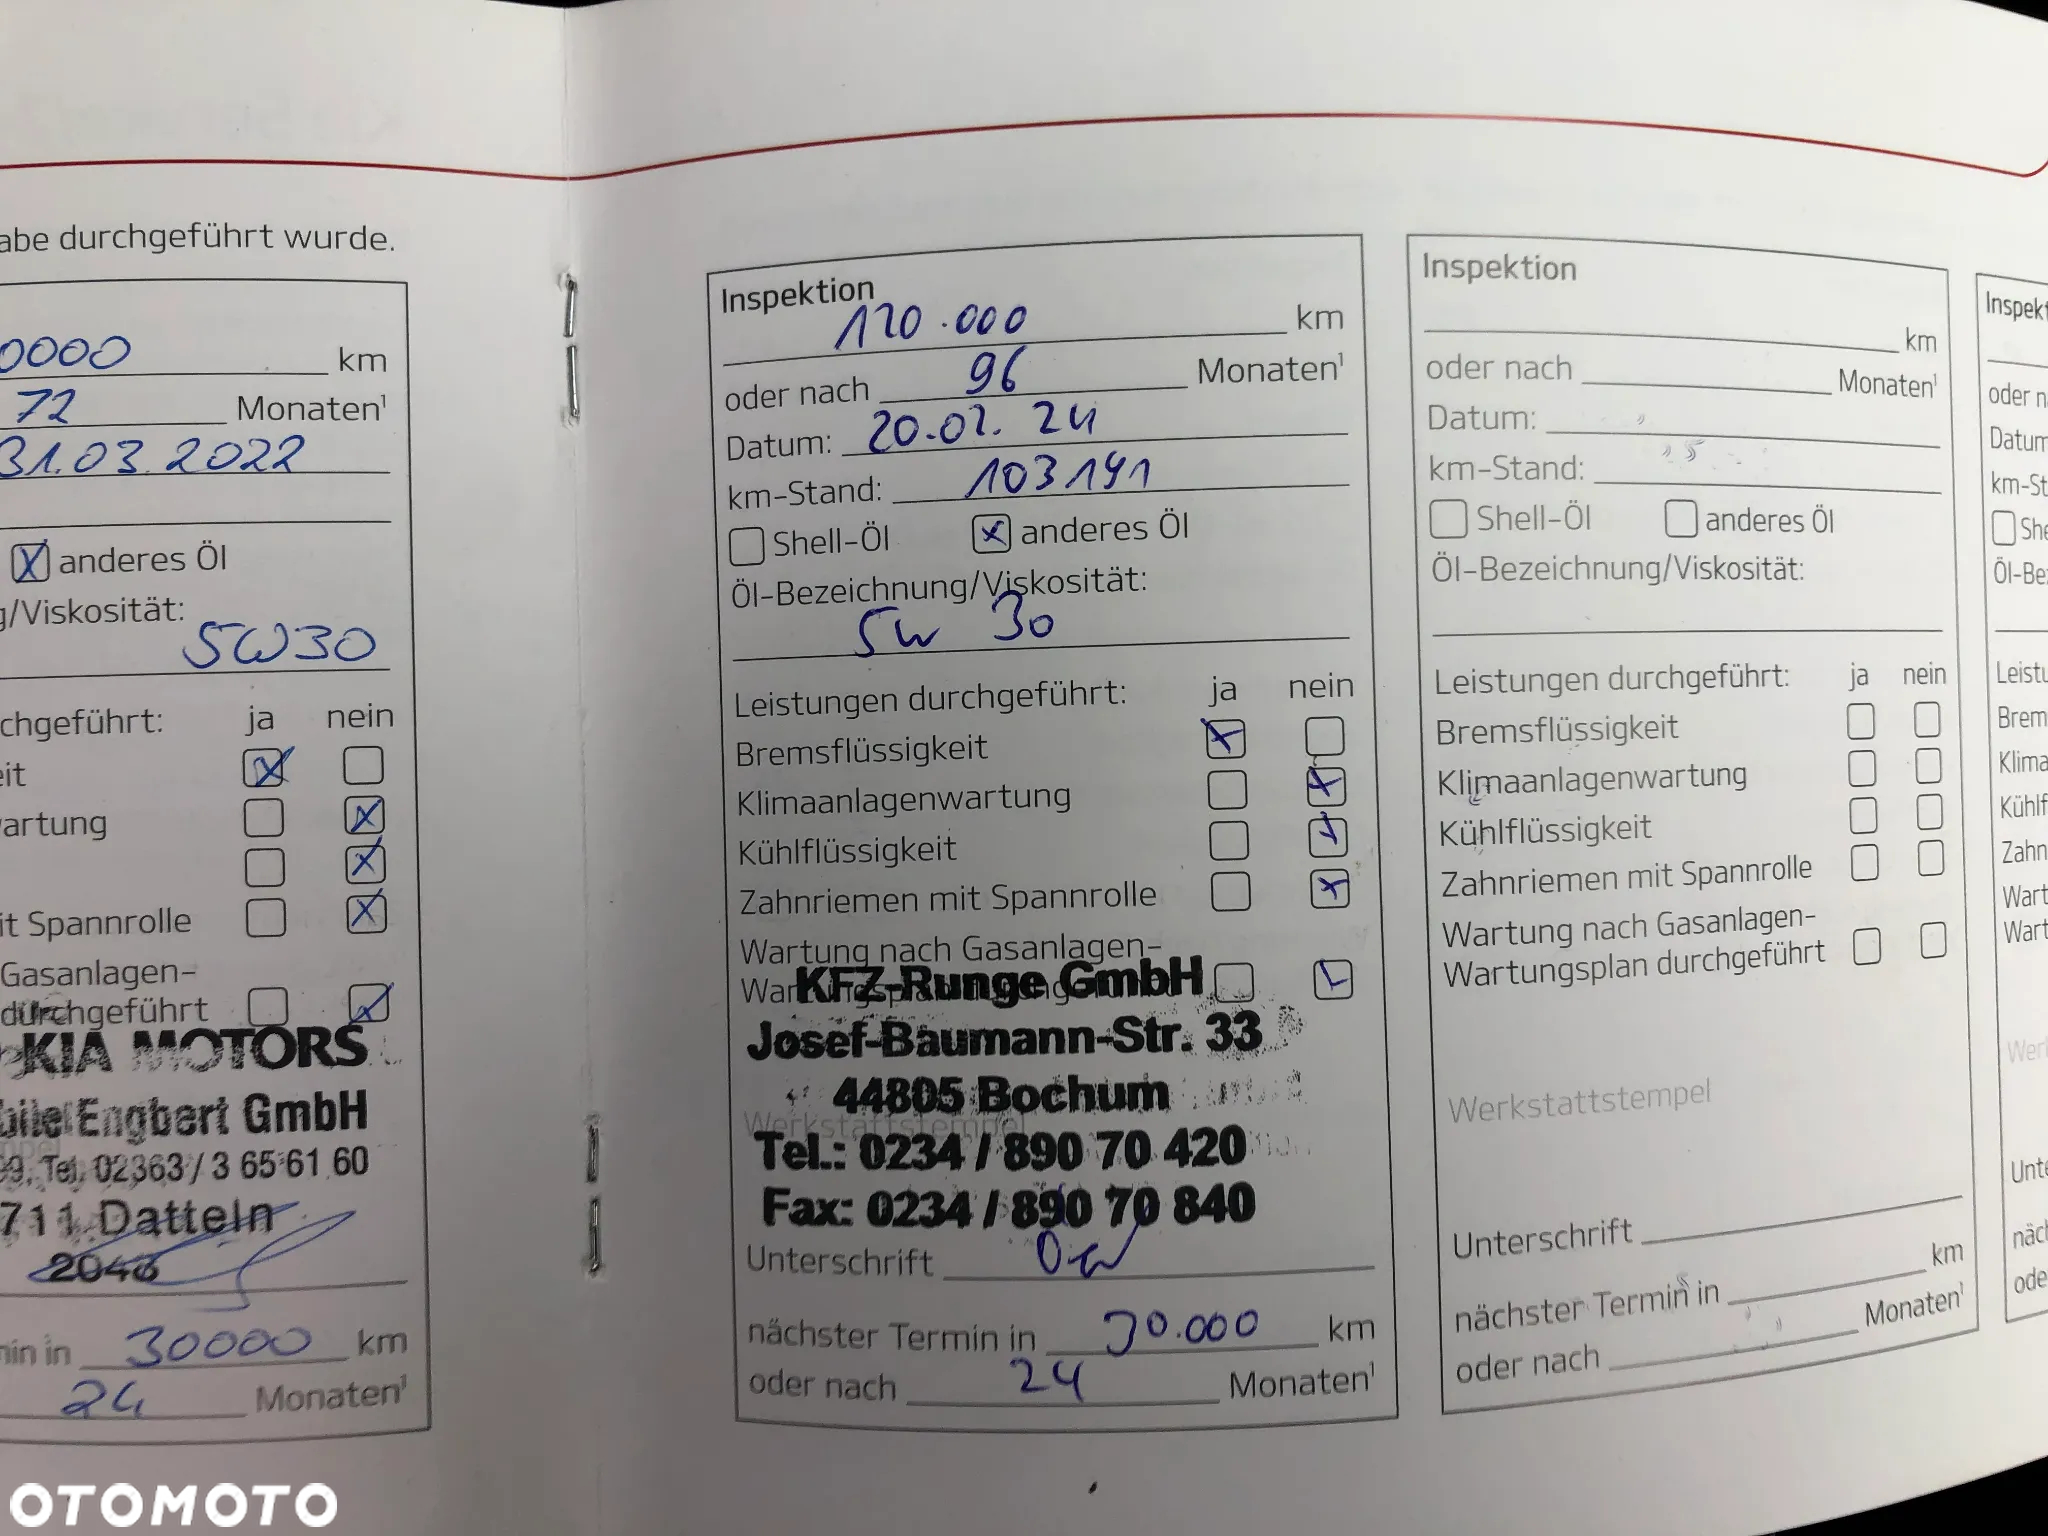 abe durchgeführt wurde.
0000 km
72 Monaten¹
31.03.2022
X anderes Öl
g/Viskosität:
5W30
chgeführt: ja nein
eit
wartung
it Spannrolle
Gasanlagen-
durchgeführt
KIA MOTORS
bile Engbert GmbH
99, Tel. 02363 / 3 65 61 60
711 Datteln
2046
min in 30000 km
24 Monaten¹
Inspektion
120.000 km
oder nach 96 Monaten¹
Datum: 20.02.24
km-Stand: 103191
Shell-Öl x anderes Öl
Öl-Bezeichnung/Viskosität:
5W 30
Leistungen durchgeführt: ja nein
Bremsflüssigkeit
Klimaanlagenwartung
Kühlflüssigkeit
Zahnriemen mit Spannrolle
Wartung nach Gasanlagen-
KFZ-Runge GmbH
Josef-Baumann-Str. 33
44805 Bochum
Werkstattstempel
Tel.: 0234 / 890 70 420
Fax: 0234 / 890 70 840
Unterschrift
nächster Termin in 30.000 km
oder nach 24 Monaten¹
Inspektion
km
oder nach Monaten¹
Datum:
km-Stand:
Shell-Öl anderes Öl
Öl-Bezeichnung/Viskosität:
Leistungen durchgeführt: ja nein
Bremsflüssigkeit
Klimaanlagenwartung
Kühlflüssigkeit
Zahnriemen mit Spannrolle
Wartung nach Gasanlagen-
Wartungsplan durchgeführt
Werkstattstempel
Unterschrift
nächster Termin in km
oder nach Monaten¹
Inspekt
oder n
Datum
km-St
She
Öl-Be
Leistu
Brem
Klima
Kühlf
Zahn
Wart
Wart
Werk
Unte
näch
ode
OTOMOTO